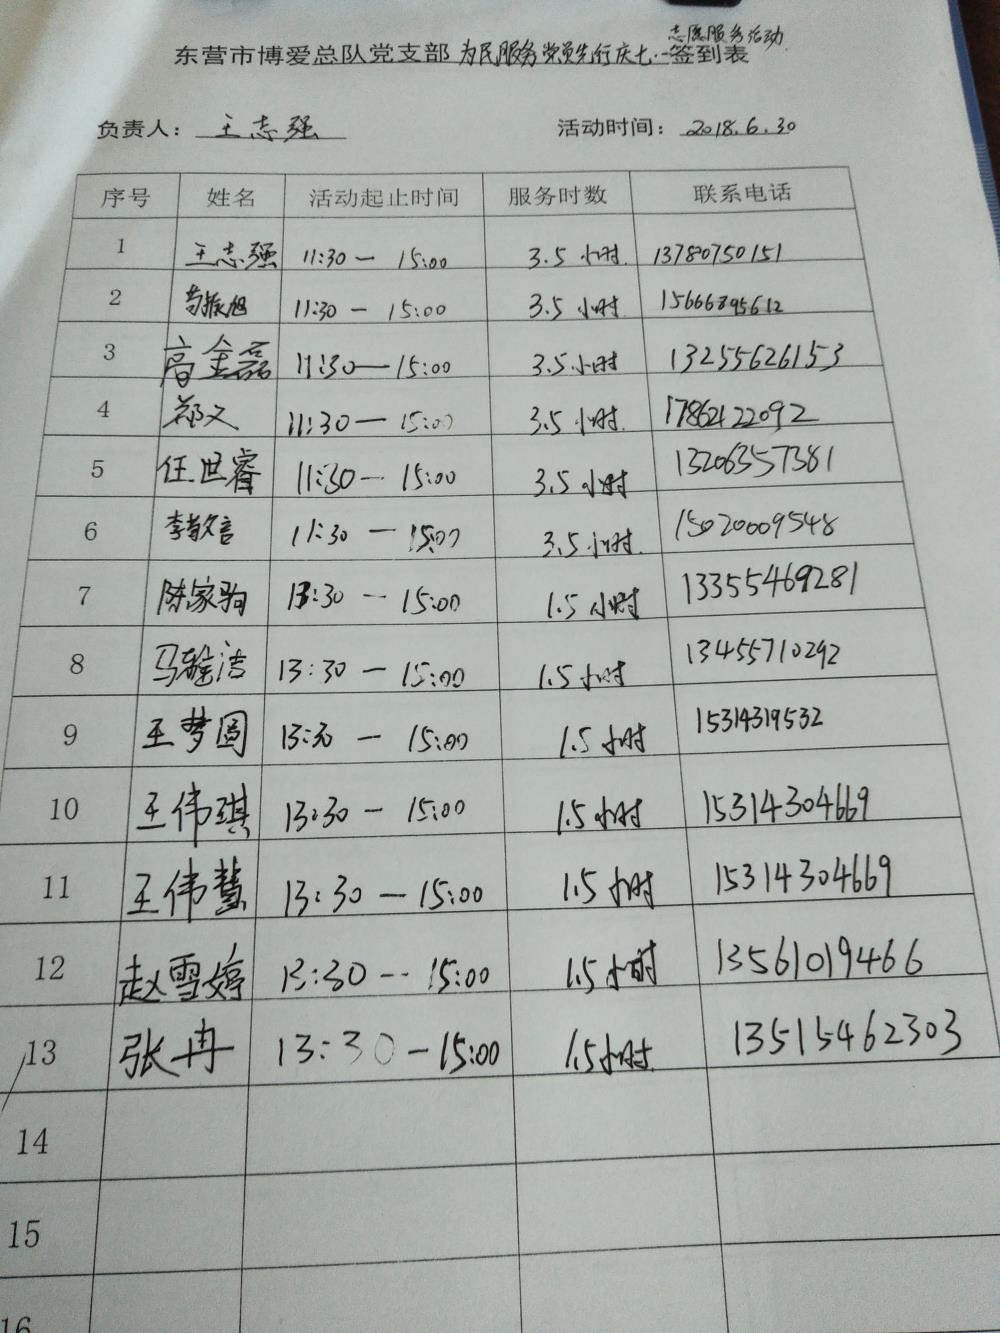 志愿服务活动
东营市博爱总队党支部 为民服务党员先行庆七·一 签到表
负责人： 王志强 活动时间： 2018.6.30
序号 姓名 活动起止时间 服务时数 联系电话
1 王志强 11:30 — 15:00 3.5 小时 13780750151
2 苟振旭 11:30 — 15:00 3.5 小时 15666895612
3 高金磊 11:30 — 15:00 3.5 小时 13255626153
4 郑义 11:30 — 15:00 3.5 小时 17862122092
5 任世睿 11:30 — 15:00 3.5 小时 13206357381
6 李敬言 11:30 — 15:00 3.5 小时 15020009548
7 陈家驹 13:30 — 15:00 1.5 小时 13355469281
8 马 洁 13:30 — 15:00 1.5 小时 13455710292
9 王梦圆 13:30 — 15:00 1.5 小时 15314319532
10 王伟琪 13:30 — 15:00 1.5 小时 15314304669
11 王伟慧 13:30 — 15:00 1.5 小时 15314304669
12 赵雪婷 13:30 — 15:00 1.5 小时 13561019466
13 张冉 13:30 — 15:00 1.5 小时 13515462303
14
15
16